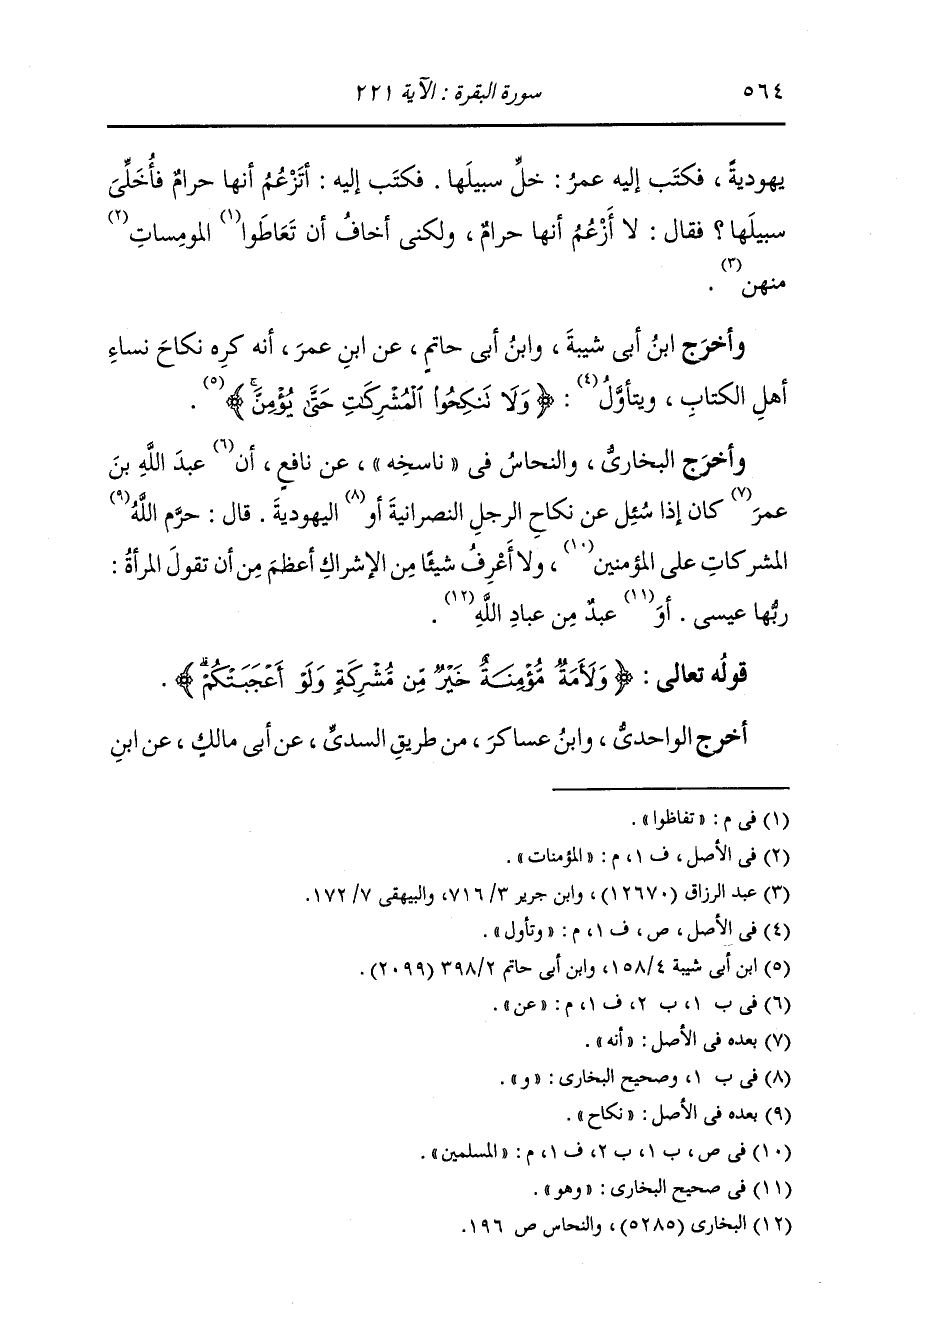 ٥٦٤ سورة البقرة : الآية ٢٢١
يهوديةً ، فكتَب إليه عمرُ : خلِّ سبيلَها . فكتَب إليه : أتَزْعُمُ أنها حرامٌ فأُخَلِّىَ
سبيلَها ؟ فقال : لا أَزْعُمُ أنها حرامٌ ، ولكنى أخافُ أن تَعَاطَوا(١) المومِساتِ(٢)
منهن(٣) .
وأخرَج ابنُ أبى شيبةَ ، وابنُ أبى حاتمٍ ، عن ابنِ عمرَ ، أنه كرِه نكاحَ نساءِ
أهلِ الكتابِ ، ويتأوَّلُ(٤) : ﴿ وَلَا نَنكِحُوا۟ ٱلْمُشْرِكَٰتِ حَتَّىٰ يُؤْمِنَّ ۚ ﴾(٥) .
وأخرَج البخارىُّ ، والنحاسُ فى « ناسخِه » ، عن نافعٍ ، أن(٦) عبدَ اللَّهِ بنَ
عمرَ(٧) كان إذا سُئِل عن نكاحِ الرجلِ النصرانيةَ أو(٨) اليهوديةَ . قال : حرَّم اللَّهُ(٩)
المشركاتِ على المؤمنين(١٠) ، ولا أَعْرِفُ شيئًا مِن الإشراكِ أعظمَ مِن أن تقولَ المرأةُ :
ربُّها عيسى . أوَ(١١) عبدٌ مِن عبادِ اللَّهِ(١٢) .
قولُه تعالى : ﴿ وَلَأَمَةٌ مُّؤْمِنَةٌ خَيْرٌ مِّن مُّشْرِكَةٍ وَلَوْ أَعْجَبَتْكُمْ ۗ ﴾ .
أخرج الواحدىُّ ، وابنُ عساكرَ ، من طريقِ السدىِّ ، عن أبى مالكٍ ، عن ابنِ
(١) فى م : « تفاظوا » .
(٢) فى الأصل ، ف ١، م : « المؤمنات » .
(٣) عبد الرزاق (١٢٦٧٠) ، وابن جرير ٣/ ٧١٦، والبيهقى ٧/ ١٧٢.
(٤) فى الأصل ، ص ، ف ١، م : « وتأول » .
(٥) ابن أبى شيبة ١٥٨/٤، وابن أبى حاتم ٣٩٨/٢ (٢٠٩٩) .
(٦) فى ب ١، ب ٢، ف ١، م : « عن » .
(٧) بعده فى الأصل : « أنه » .
(٨) فى ب ١، وصحيح البخارى : « و » .
(٩) بعده فى الأصل : « نكاح » .
(١٠) فى ص ، ب ١، ب ٢، ف ١، م : « المسلمين » .
(١١) فى صحيح البخارى : « وهو » .
(١٢) البخارى (٥٢٨٥) ، والنحاس ص ١٩٦.